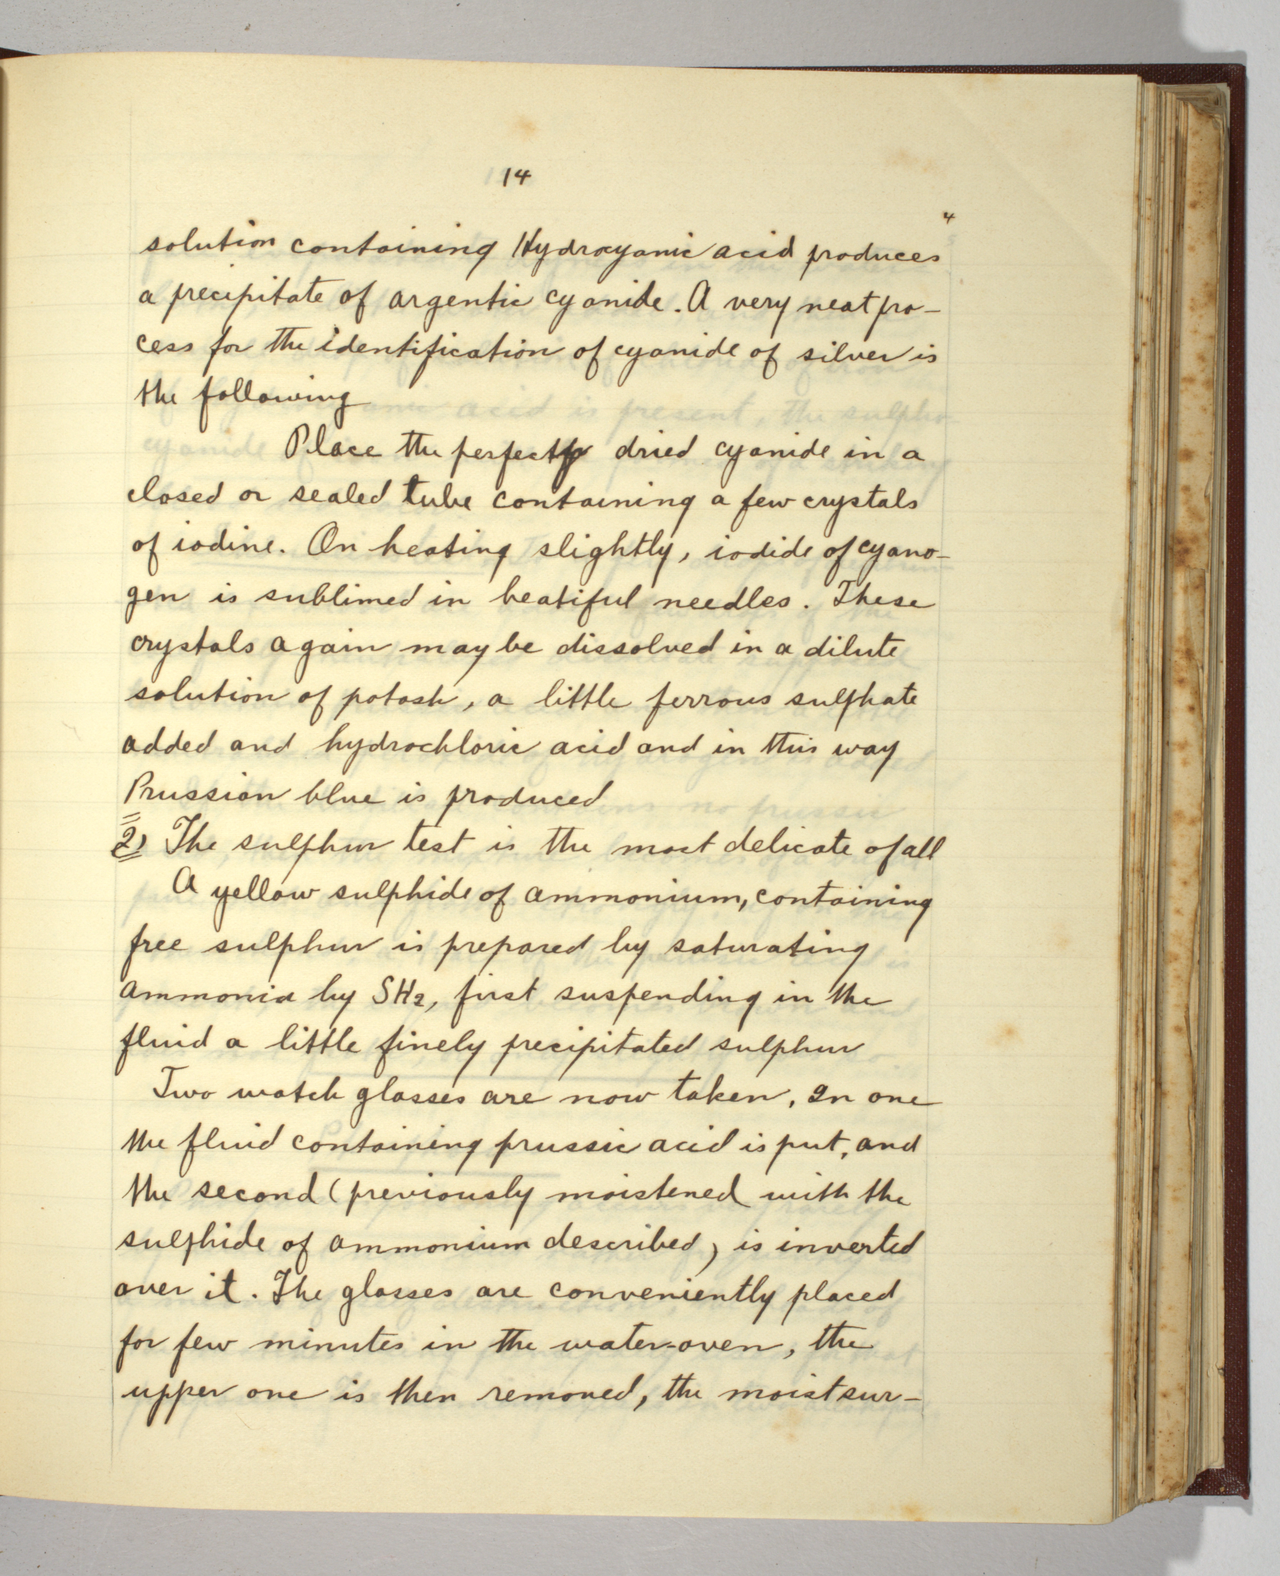 14
4
solution containing Hydrocyanic acid produces
a precipitate of argentic cyanide. A very neat pro-
cess for the identification of cyanide of silver is
the following
Place the perfectly dried cyanide in a
closed or sealed tube containing a few crystals
of iodine. On heating slightly, iodide of cyano-
gen is sublimed in beatiful needles. These
crystals again may be dissolved in a dilute
solution of potash, a little ferrous sulphate
added and hydrochloric acid and in this way
Prussian blue is produced
2) The sulphur test is the most delicate of all
A yellow sulphide of ammonium, containing
free sulphur is prepared by saturating
ammonia by SH2, first suspending in the
fluid a little finely precipitated sulphur
Two watch glasses are now taken, In one
the fluid containing prussic acid is put, and
the second (previously moistened with the
sulphide of ammonium described) is inverted
over it. The glasses are conveniently placed
for few minutes in the water-oven, the
upper one is then removed, the moist sur-